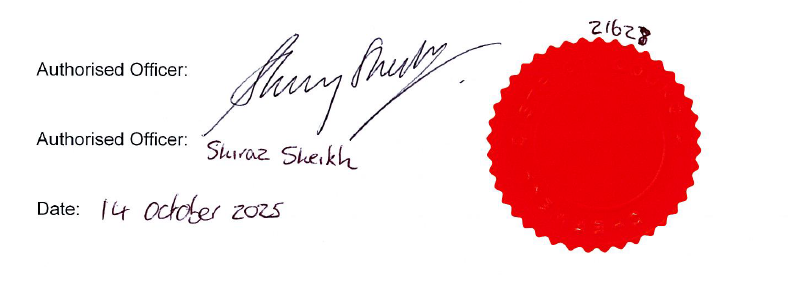 21628
Authorised Officer:
Authorised Officer: Shiraz Sheikh
Date: 14 October 2025